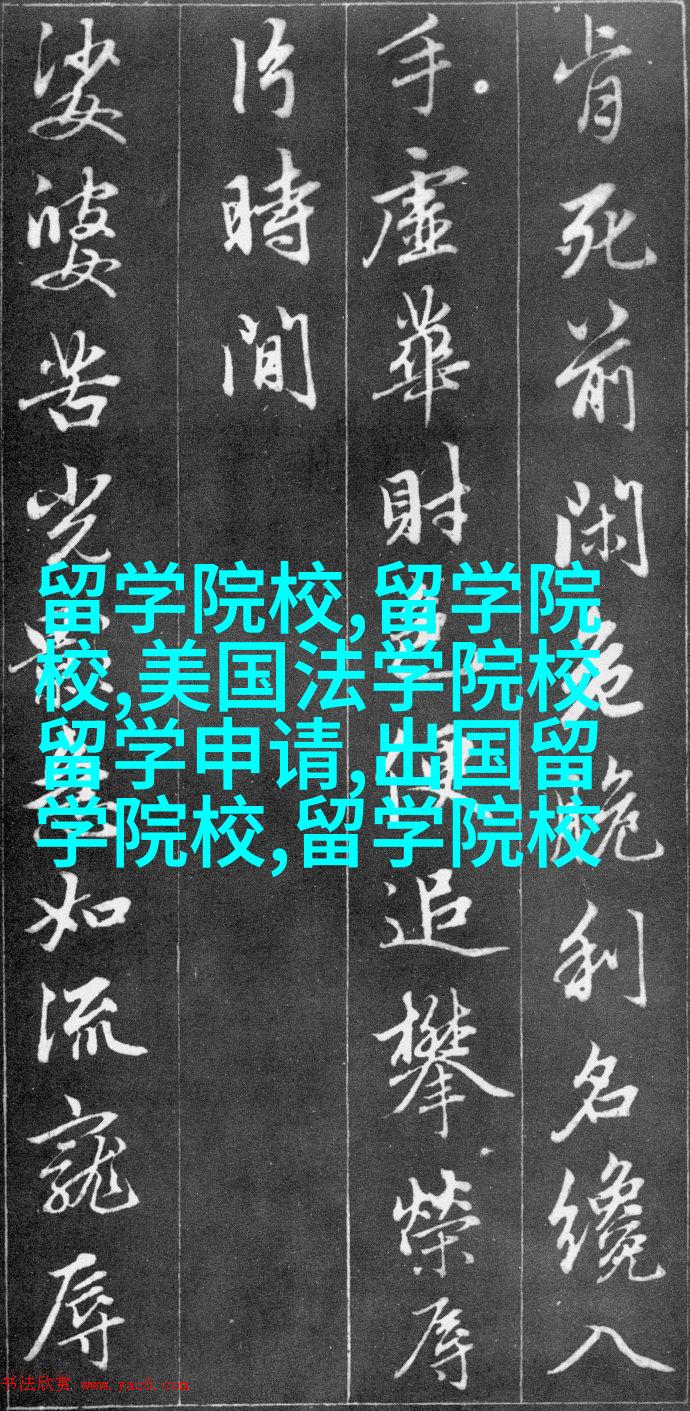 肯死前閑危脆利名纔入
手虛華財便追攀榮辱
片時間
娑婆苦光如流寵辱
留学院校,留学院
校,美国法学院校
留学申请,出国留
学院校,留学院校
书法欣赏 www.yac8.com